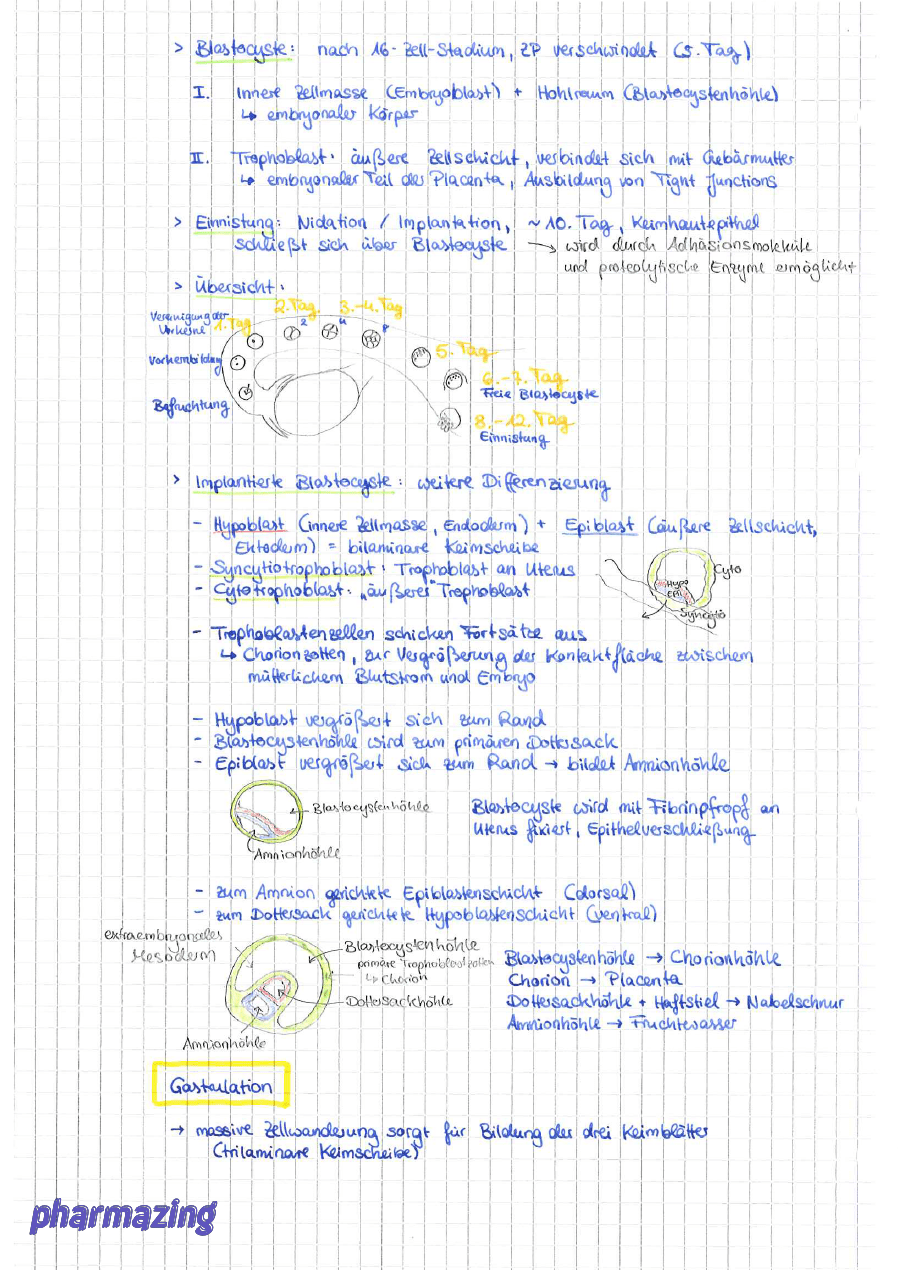 > Blastocyste: nach 16-Zell-Stadium, ZP verschwindet (5. Tag)
I. Innere Zellmasse (Embryoblast) + Hohlraum (Blastocystenhöhle)
↳ embryonaler Körper
II. Trophoblast: äußere Zellschicht, verbindet sich mit Gebärmutter
↳ embryonaler Teil der Placenta, Ausbildung von Tight Junctions
> Einnistung: Nidation / Implantation, ~ 10. Tag, Keimhautepithel
schließt sich über Blastocyste → wird durch Adhäsionsmoleküle
und proteolytische Enzyme ermöglicht
> Übersicht:
2. Tag 3.-4. Tag
Vereinigung der
Vorkerne 1. Tag
2 4 8
Vorkernbildung
5. Tag
6.-7. Tag
Freie Blastocyste
Befruchtung
8.-12. Tag
Einnistung
> Implantierte Blastocyste: weitere Differenzierung
- Hypoblast (innere Zellmasse, Endoderm) + Epiblast (äußere Zellschicht,
Ektoderm) = bilaminare Keimscheibe
- Syncytiotrophoblast: Trophoblast an Uterus
- Cytotrophoblast: „äußerer" Trophoblast
Cyto
Hypo
Epi
Syncytio
- Trophoblastenzellen schicken Fortsätze aus
↳ Chorionzotten, zur Vergrößerung der Kontaktfläche zwischem
mütterlichem Blutstrom und Embryo
- Hypoblast vergrößert sich zum Rand
- Blastocystenhöhle wird zum primären Dottersack
- Epiblast vergrößert sich zum Rand → bildet Amnionhöhle
Blastocystenhöhle
Amnionhöhle
Blastocyste wird mit Fibrinpfropf an
Uterus fixiert, Epithelverschließung
- zum Amnion gerichtete Epiblastenschicht (dorsal)
- zum Dottersack gerichtete Hypoblastenschicht (ventral)
extraembryonales
Mesoderm
Blastocystenhöhle
primäre Trophoblastzotten
↳ Chorion
Dottersackhöhle
Amnionhöhle
Blastocystenhöhle → Chorionhöhle
Chorion → Placenta
Dottersackhöhle + Haftstiel → Nabelschnur
Amnionhöhle → Fruchtwasser
Gastrulation
→ massive Zellwanderung sorgt für Bildung der drei Keimblätter
(trilaminare Keimscheibe)
pharmazing